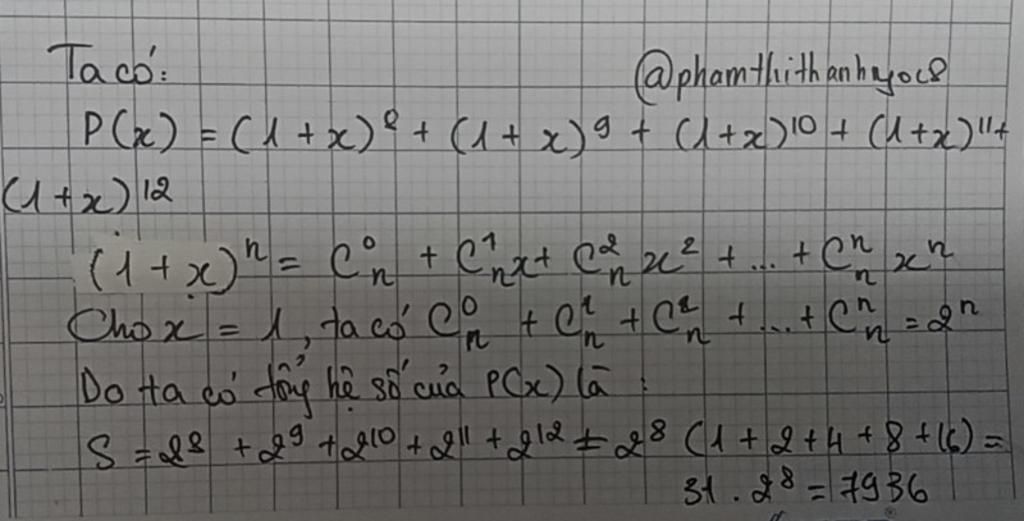 Ta có:
@phamthithanhngoc8
P(x) = (1 + x)^8 + (1 + x)^9 + (1+x)^10 + (1+x)^11 +
(1+x)^12
(1+x)^n = C_n^0 + C_n^1 x + C_n^2 x^2 + ... + C_n^n x^n
Cho x = 1, ta có C_n^0 + C_n^1 + C_n^2 + ... + C_n^n = 2^n
Do ta có tổng hệ số của P(x) là :
S = 2^8 + 2^9 + 2^10 + 2^11 + 2^12 = 2^8 (1 + 2 + 4 + 8 + 16) =
31 . 2^8 = 7936